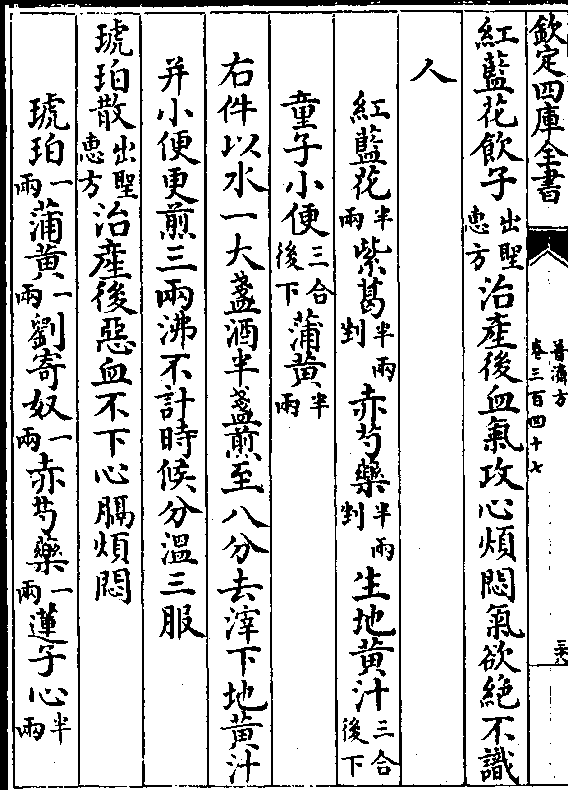 欽定四庫全書
普濟方
卷三百四十七
紅藍花飲子出聖惠方治產後血氣攻心煩悶氣欲絕不識
人
紅藍花半兩紫葛半兩剉赤芍藥半兩剉生地黃汁三合後下
童子小便三合後下蒲黃半兩
右件以水一大盞酒半盞煎至八分去滓下地黃汁
并小便更煎三兩沸不計時候分溫三服
琥珀散出聖惠方治產後惡血不下心膈煩悶
琥珀一兩蒲黃一兩劉寄奴一兩赤芍藥一兩蓮子心半兩